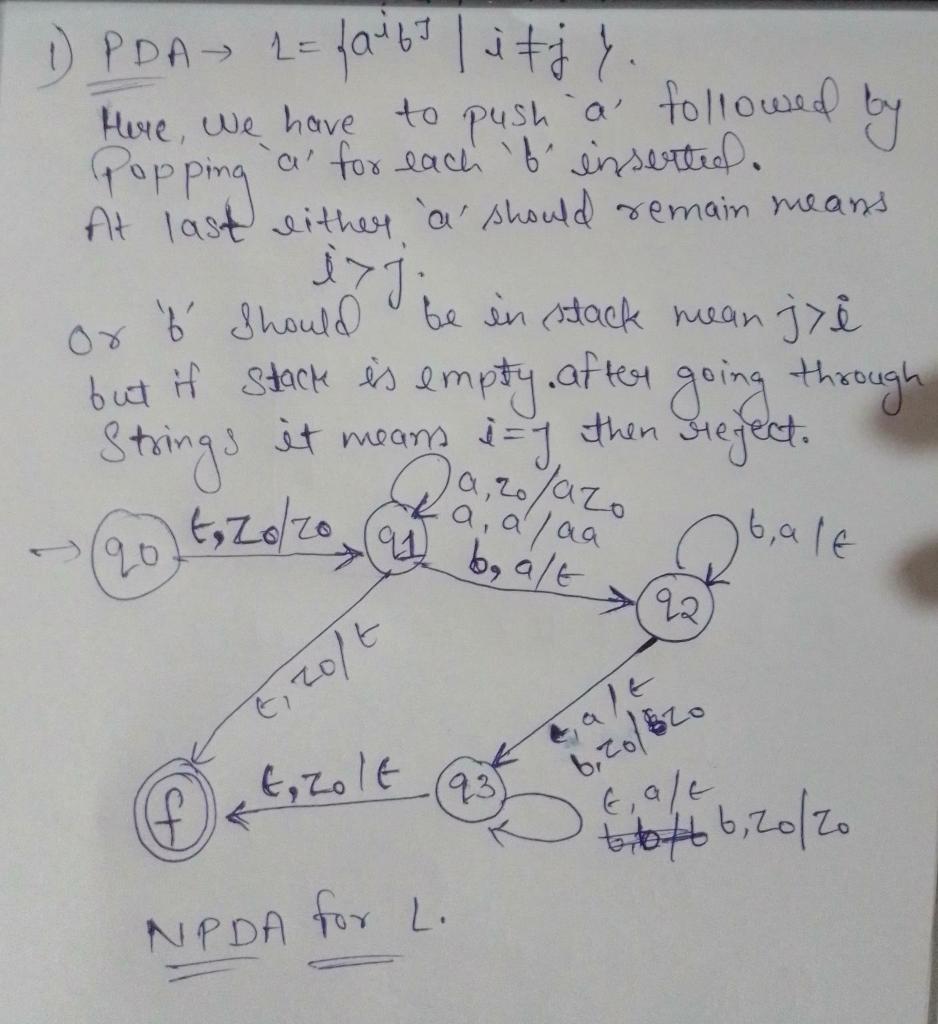 1) PDA → L = {aⁱbʲ | i ≠ j }.
Here, we have to push 'a' followed by
Popping 'a' for each 'b' inserted.
At last either 'a' should remain means
i > j.
Or 'b' should be in stack mean j > i
but if stack is empty. after going through
Strings it means i = j then reject.
a, z0/az0
→ q0 ϵ, Z0/z0 q1 a, a/aa
b, a/ϵ
b, a/ϵ
q2
ϵ, z0/ϵ
ϵ, a/ϵ
b, z0/z0
f ϵ, Z0/ϵ q3
ϵ, a/ϵ
b, z0/z0
NPDA for L.